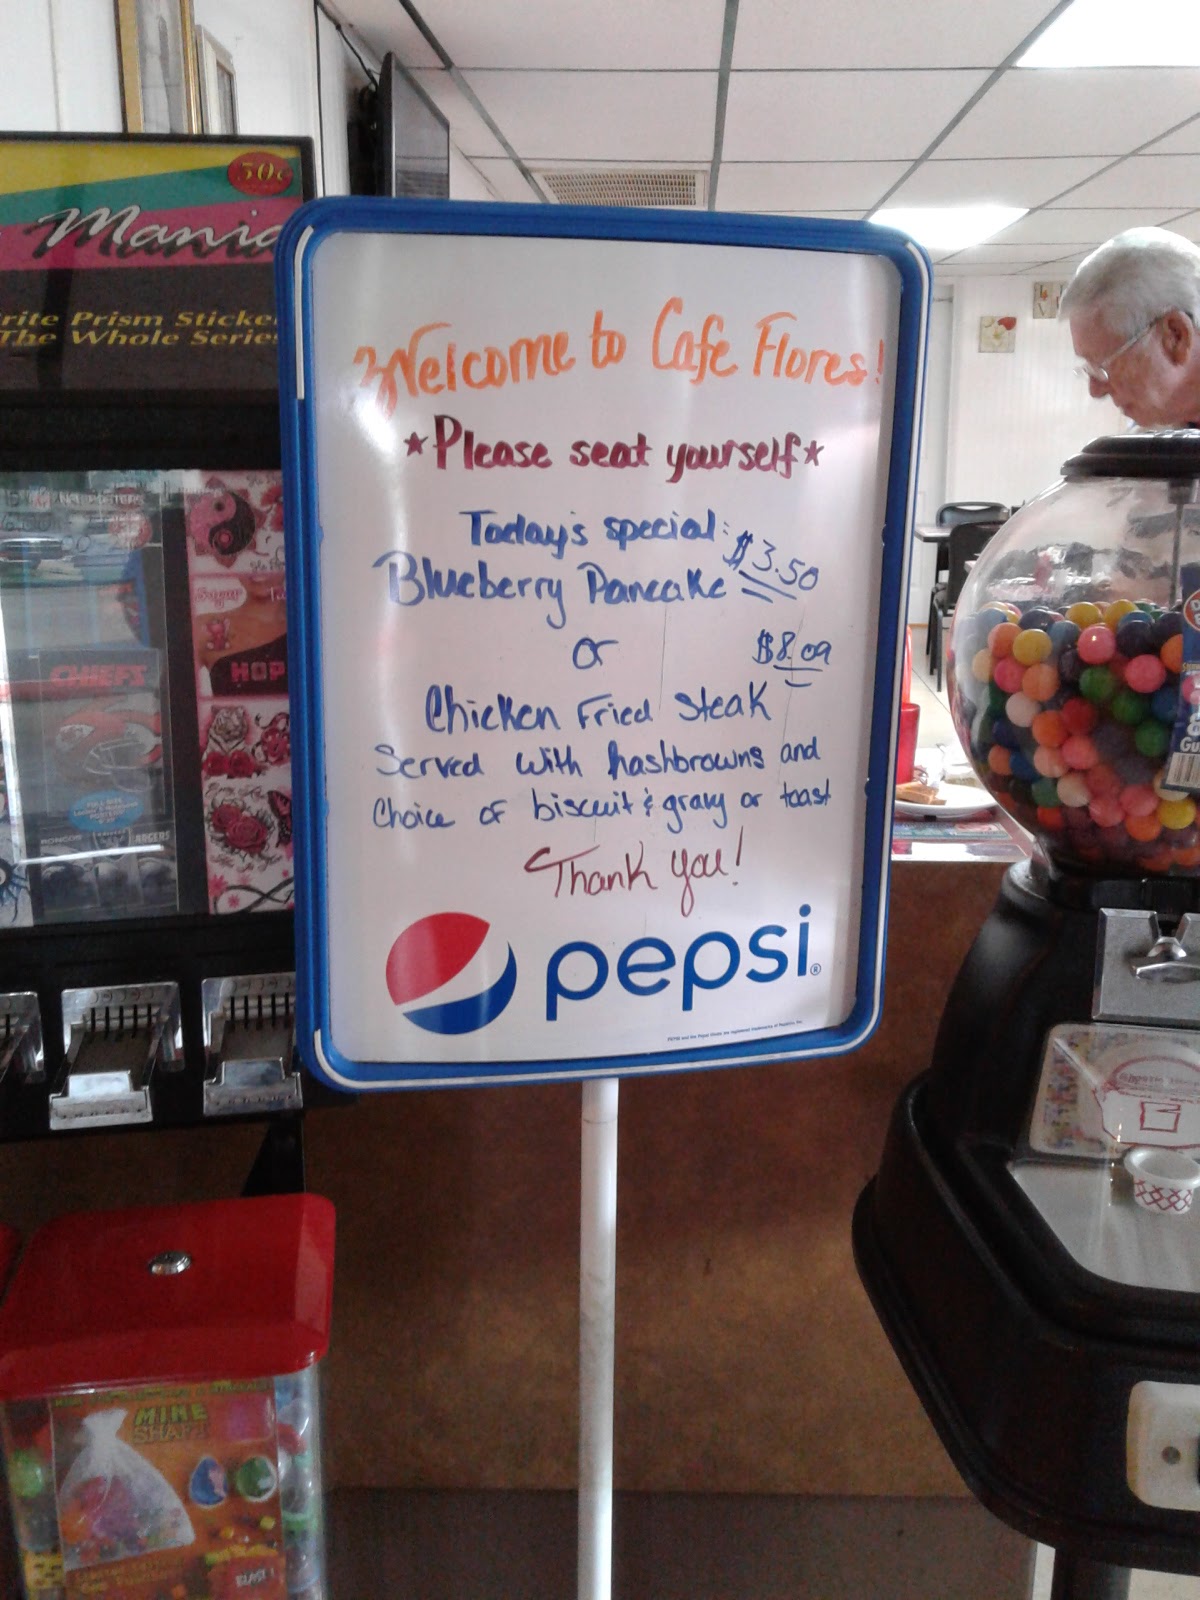 50¢
Mania
Prism Sticke
The Whole Serie
Welcome to Cafe Flores!
*Please seat yourself*
Today's special:
$3.50
Blueberry Pancake
or
$8.09
Chicken Fried Steak
Served with hashbrowns and
Choice of biscuit & gravy or toast
Thank you!
pepsi®
CHIEFS
Sugar
HOP
MINE
SHAFT
BLAST!